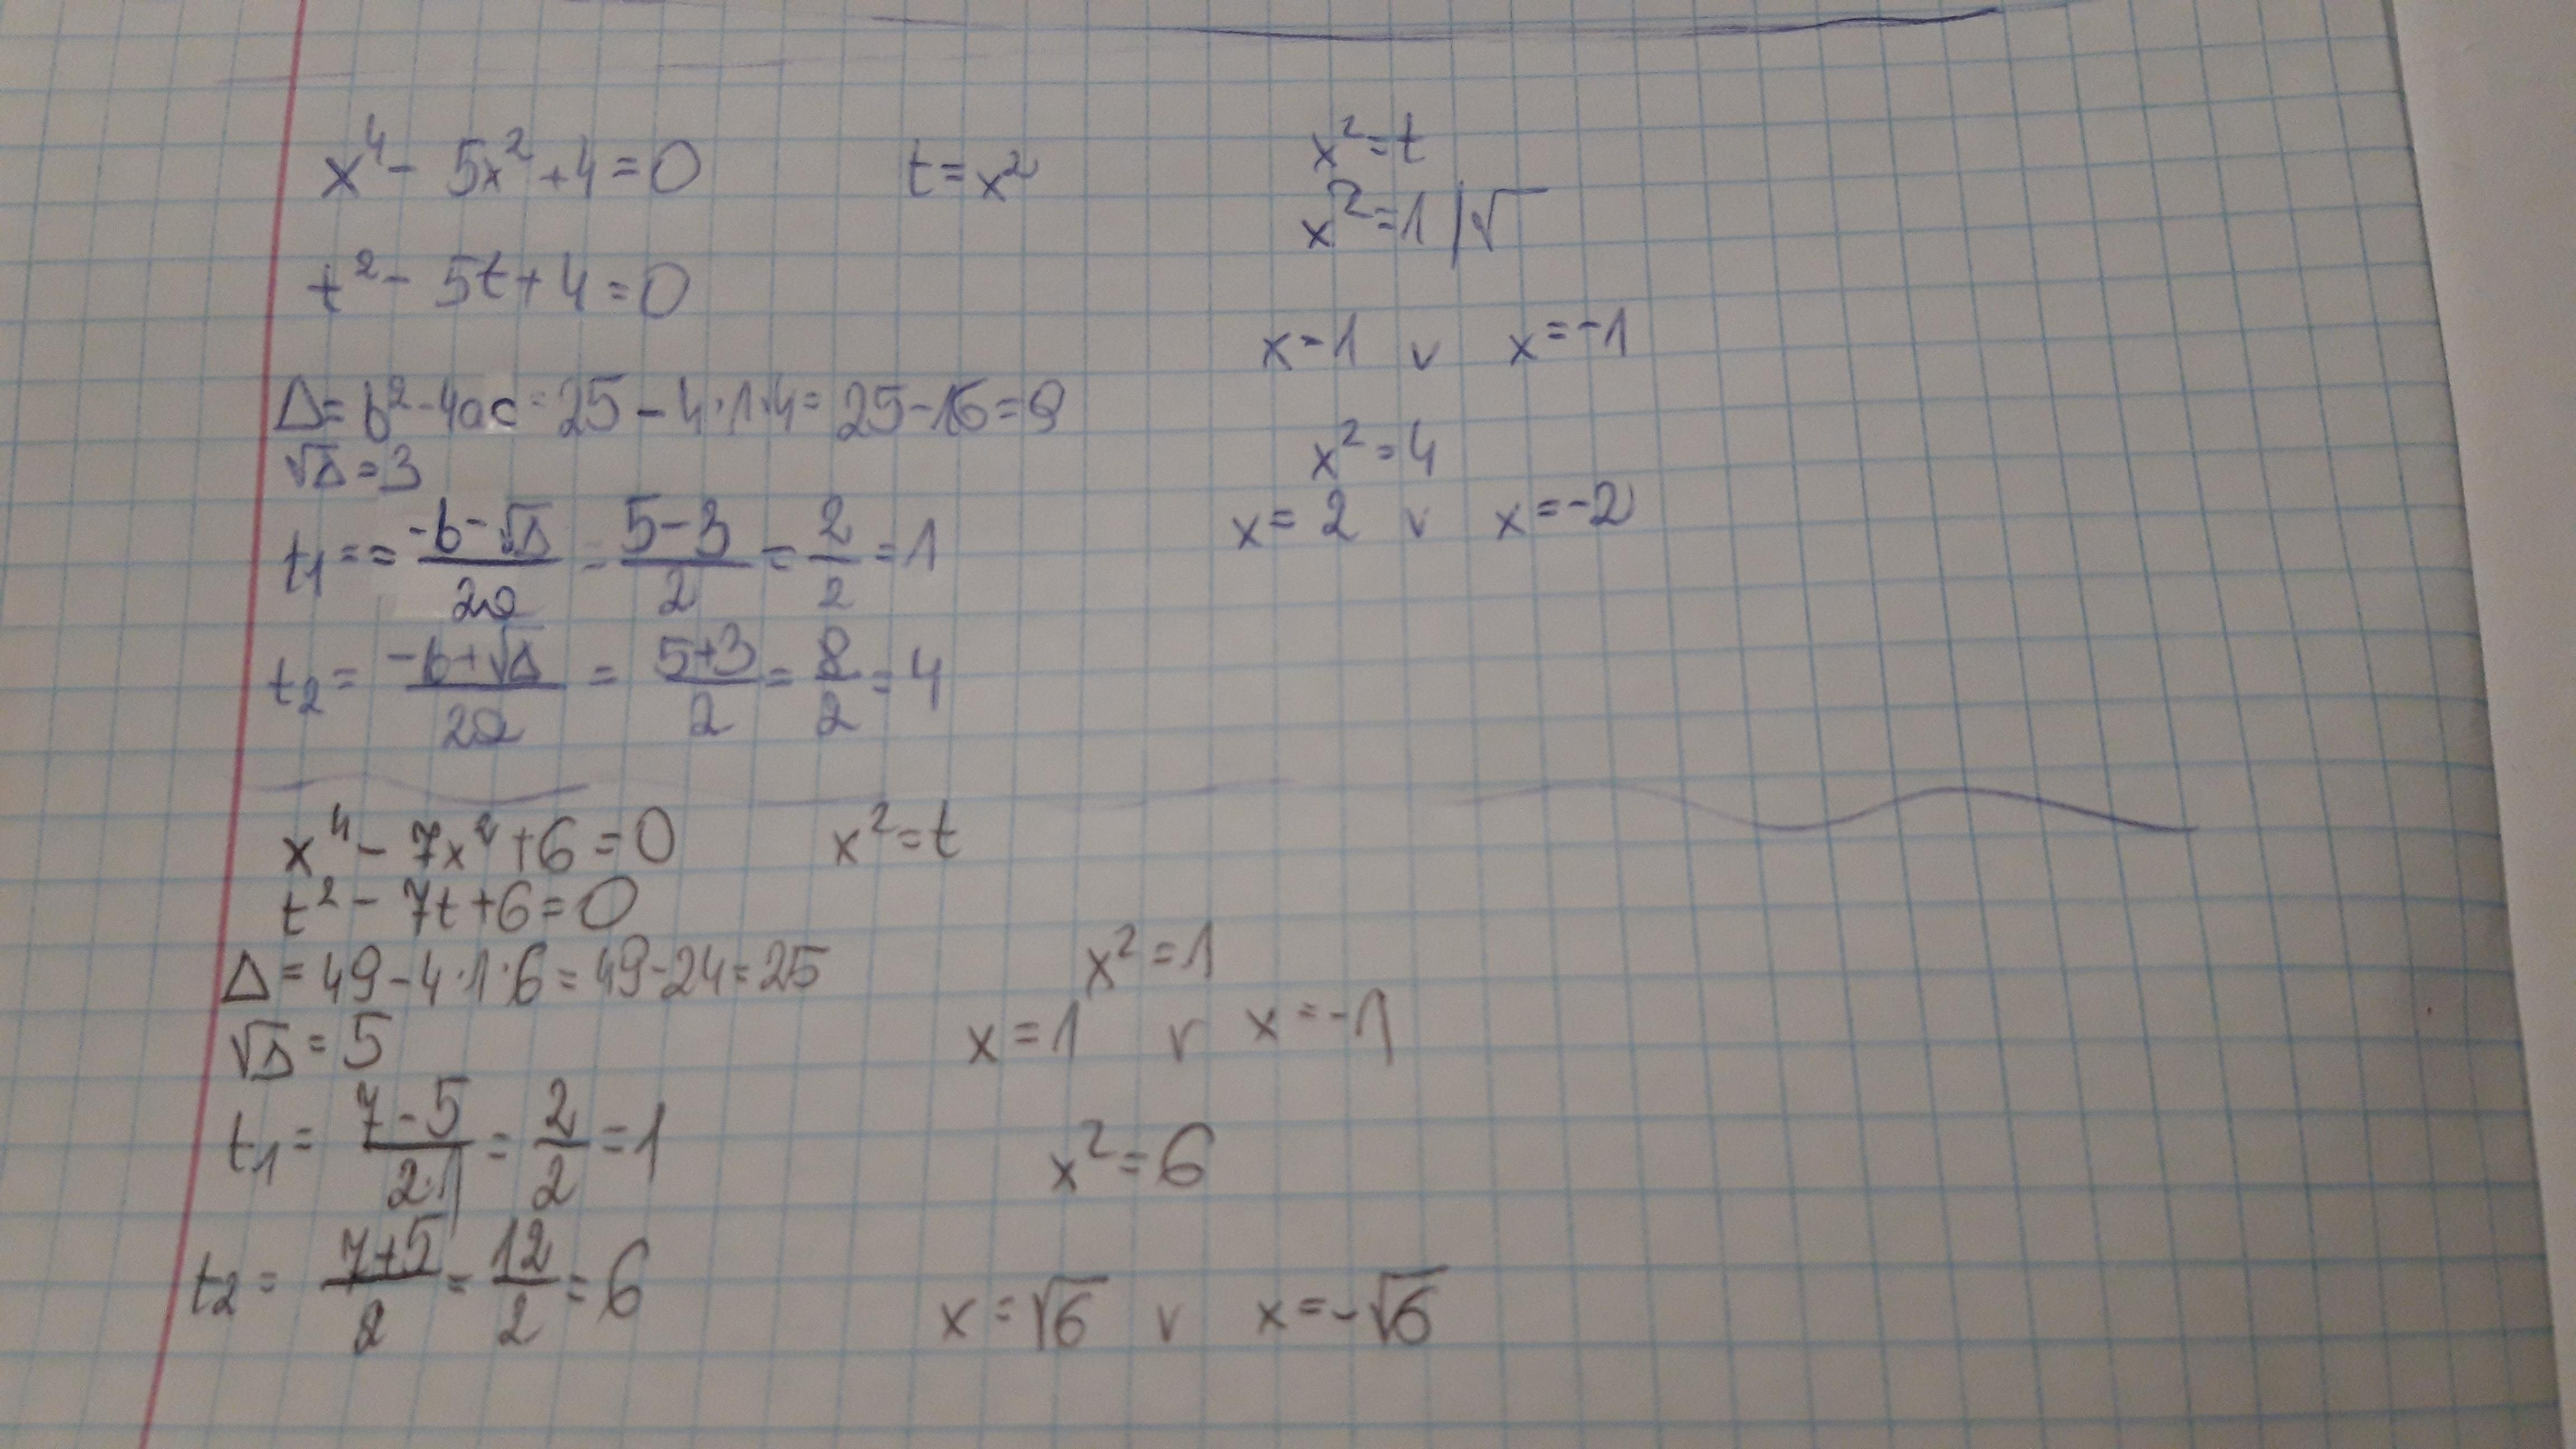 x⁴ - 5x² + 4 = 0
t = x²
t² - 5t + 4 = 0
Δ = b² - 4ac = 25 - 4·1·4 = 25 - 16 = 9
√Δ = 3
t₁ = = (-b - √Δ)/2a = (5 - 3)/2 = 2/2 = 1
t₂ = (-b + √Δ)/2a = (5 + 3)/2 = 8/2 = 4
x² = t
x² = 1 |√
x = 1 v x = -1
x² = 4
x = 2 v x = -2
x⁴ - 7x² + 6 = 0
x² = t
t² - 7t + 6 = 0
Δ = 49 - 4·1·6 = 49 - 24 = 25
√Δ = 5
t₁ = (7 - 5)/(2·1) = 2/2 = 1
t₂ = (7 + 5)/2 = 12/2 = 6
x² = 1
x = 1 v x = -1
x² = 6
x = √6 v x = -√6